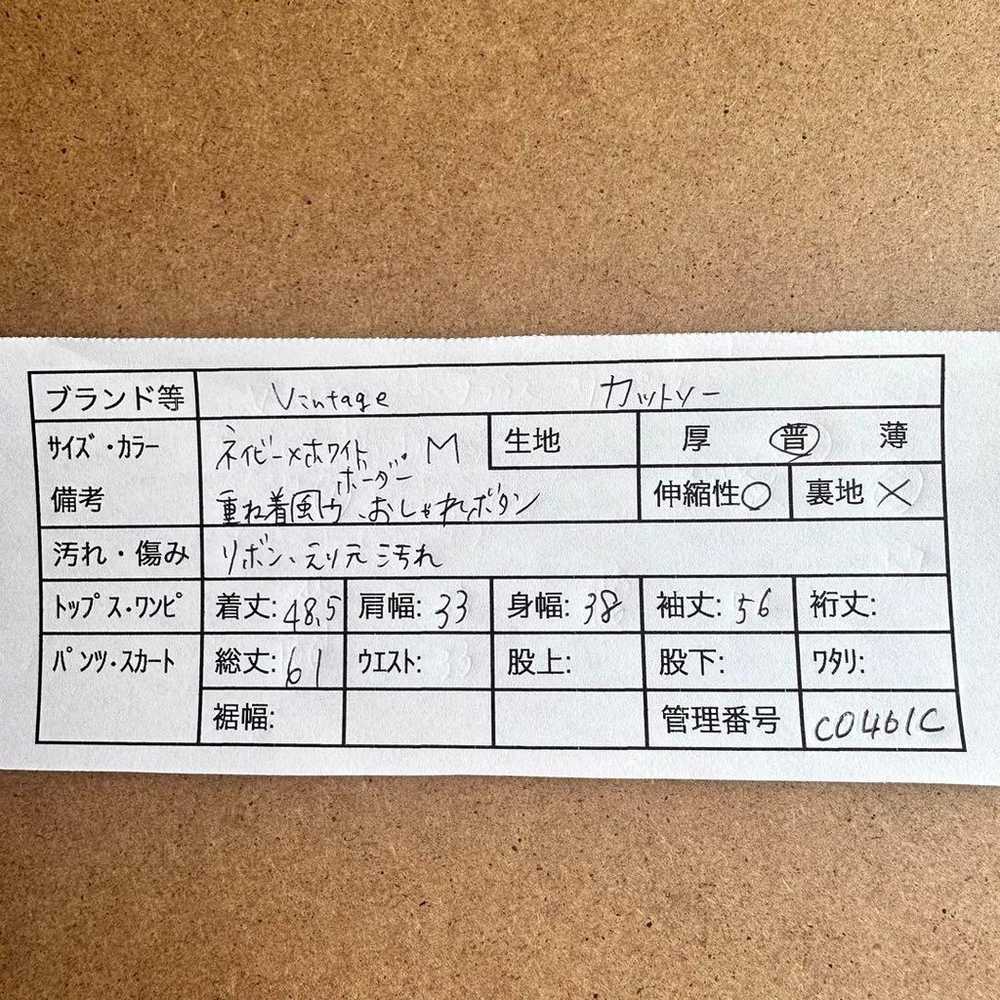 ブランド等 Vintage カットソー
サイズ・カラー ネイビー×ホワイト ボーダー M 生地 厚 普 薄
備考 重ね着風ウ、おしゃれボタン 伸縮性○ 裏地 ×
汚れ・傷み リボン、えり元汚れ
トップス・ワンピ 着丈:48.5 肩幅:33 身幅:38 袖丈:56 裄丈:
パンツ・スカート 総丈:61 ウエスト: 股上: 股下: ワタリ:
裾幅: 管理番号 C0461C